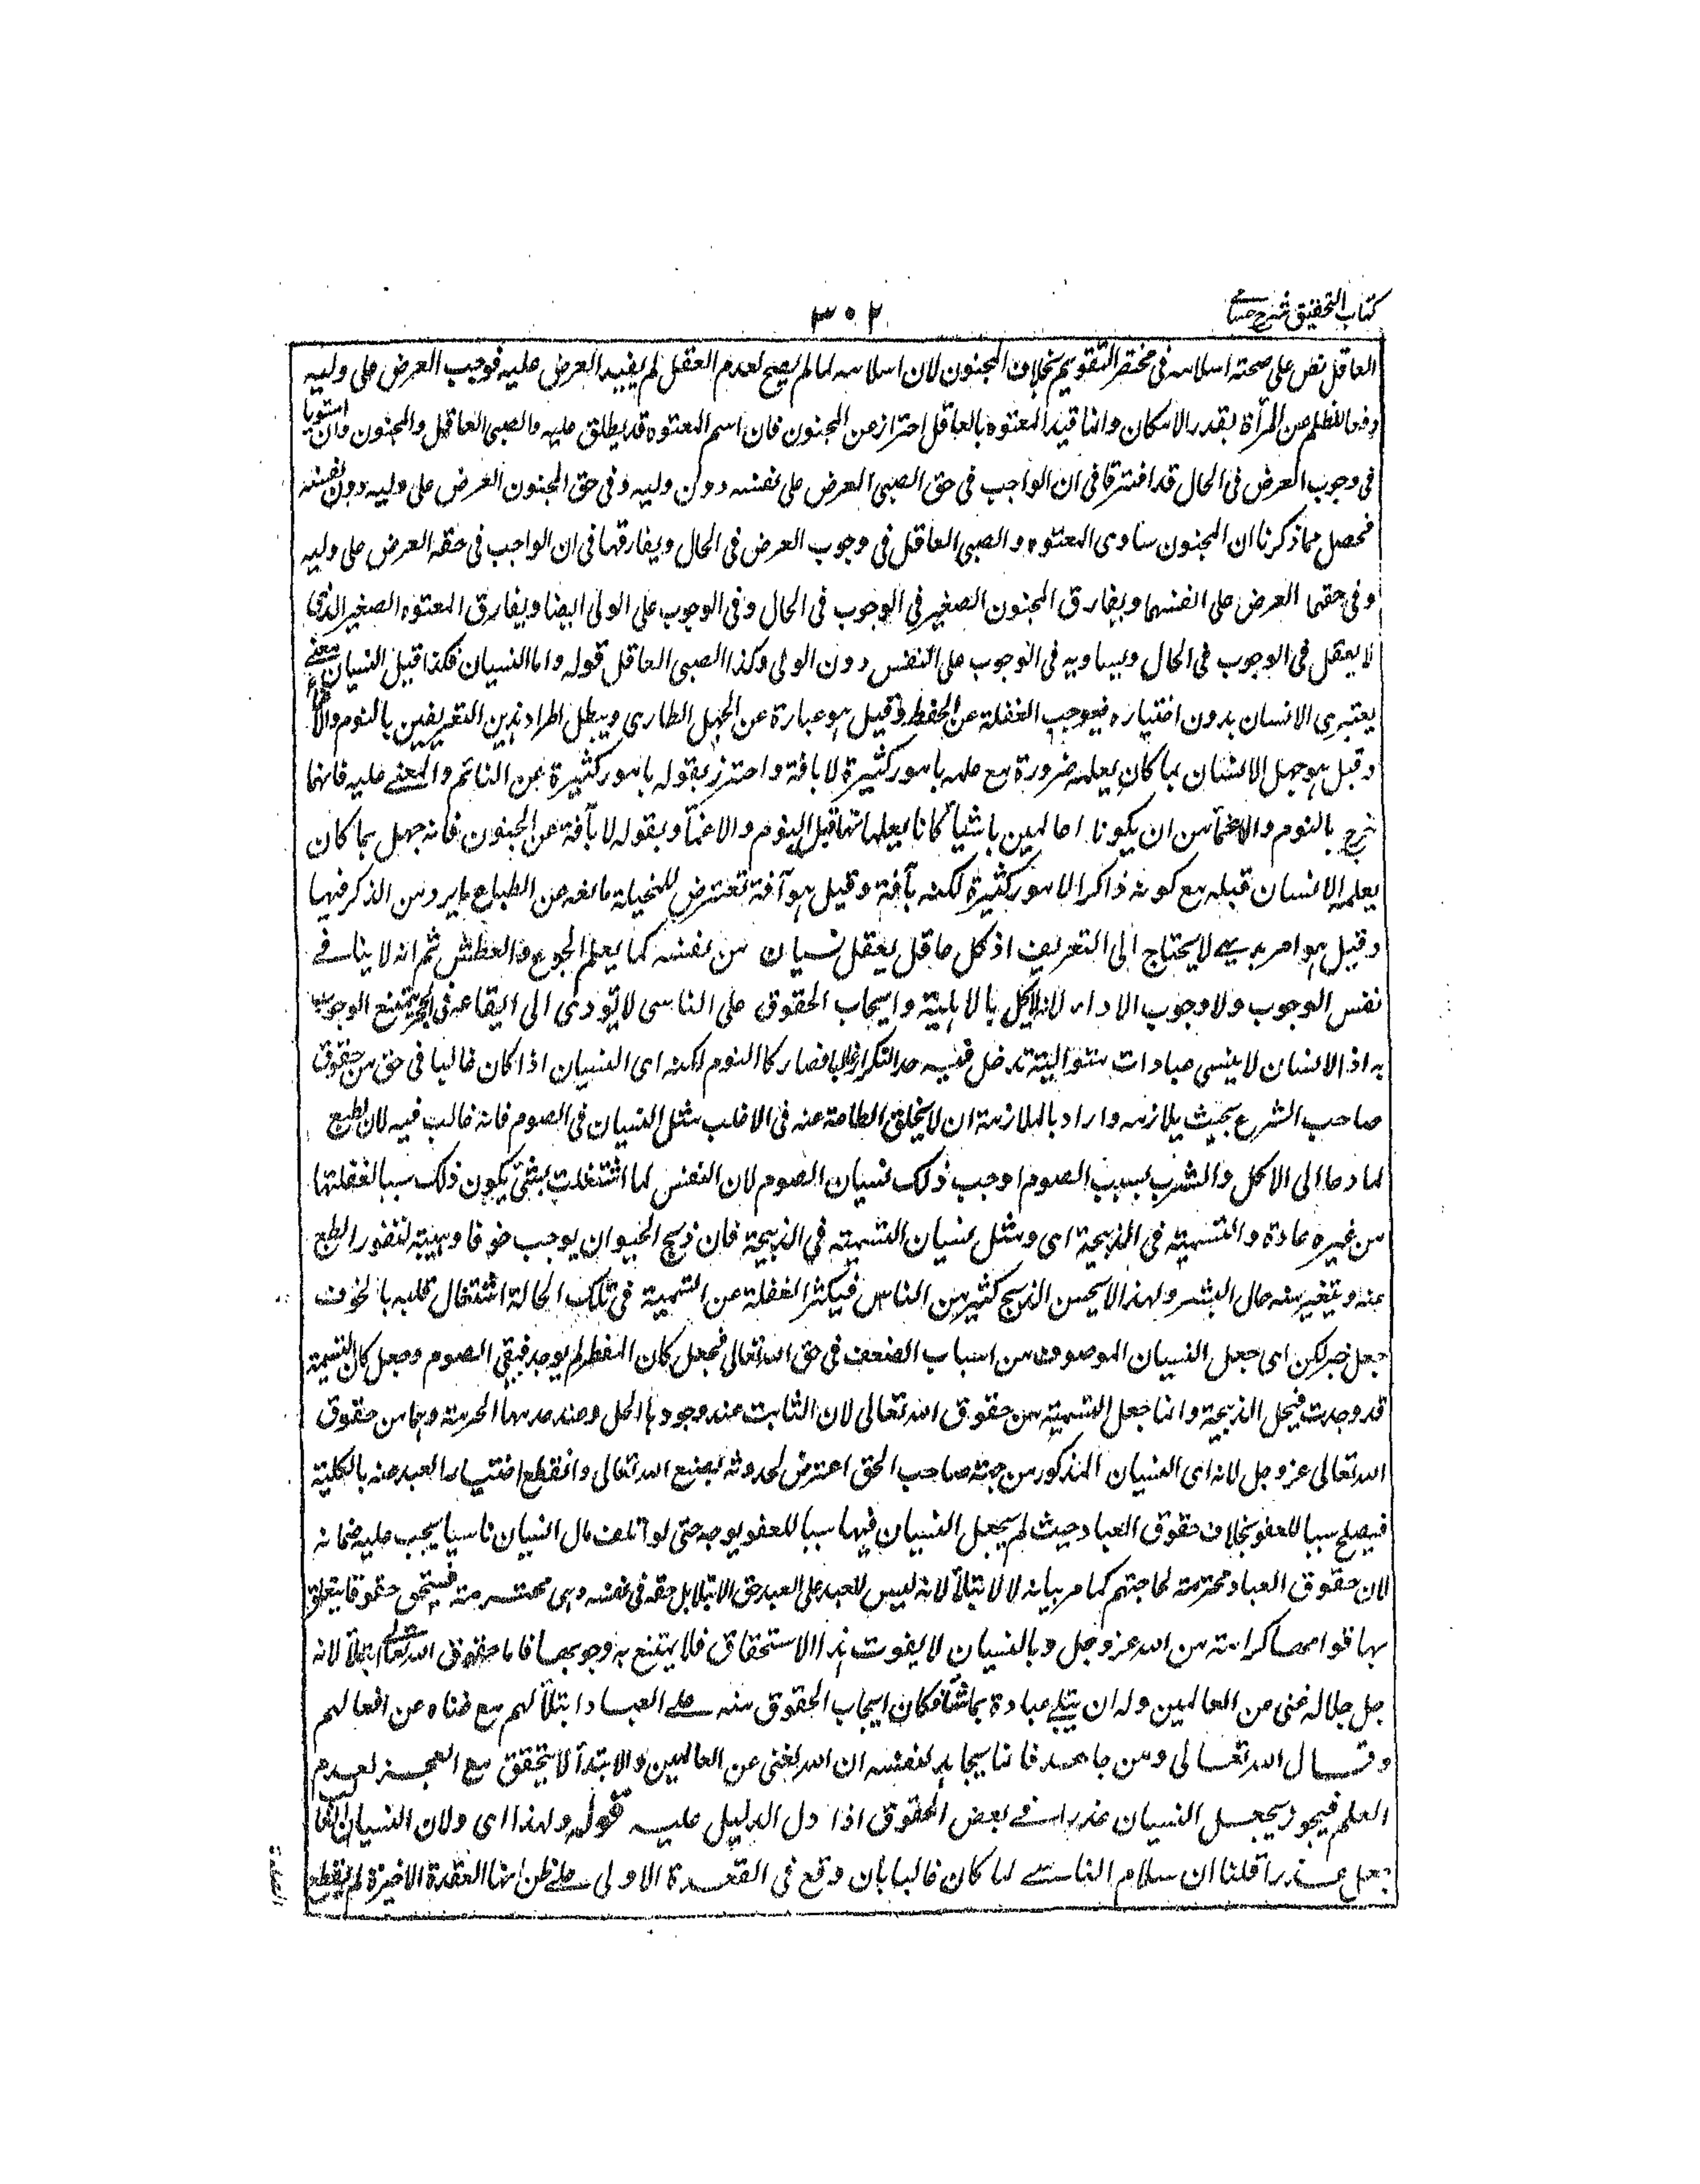 كتاب التحقيق شرح حسامی
٣٠٢
العاقل نص على صحة اسلامه فى مختصر التقويم بخلاف المجنون لان اسلامه لما لم يصح لعدم العقل لم يفيد العرض عليه فوجب العرض على وليه
دفعا للظلم عن المرأة بقدر الامكان وانما قيد المعتوه بالعاقل احترازعن المجنون فان اسم المعتوه قد يطلق عليه والصبى العاقل والمجنون وان استويا
فى وجوب العرض فى الحال قد افترقا فى ان الواجب فى حق الصبى العرض على نفسه دون وليه وفى حق المجنون العرض على وليه دون نفسه
فحصل مما ذكرنا ان المجنون ساوى المعتوه والصبى العاقل فى وجوب العرض فى الحال ويفارقهما فى ان الواجب فى حقه العرض على وليه
وفى حقهما العرض على انفسهما ويفارق المجنون الصغير فى الوجوب فى الحال وفى الوجوب على الولى ايضا ويفارق المعتوه الصغير الذى
لا يعقل فى الوجوب فى الحال ويساويه فى الوجوب على النفس دون الولى وكذا الصبى العاقل قوله واما النسيان فكذا قيل النسيان معنے
يعترى الانسان بدون اختياره فيوجب الغفلة عن الحفظ وقيل هو عبارة عن الجهل الطارى ويبطل اطراد هذين التعريفين بالنوم والاغماء
وقيل هو جهل الانسان بما كان يعلمه ضرورة مع علمه بامور كثيرة لا بآفة واحترز بقوله بامور كثيرة عن النائم والمغمے عليه فانهما
خرج بالنوم والاغمأ من ان يكونا عالمين باشيأ كانا يعلمانها قبل النوم والاغمأ وبقوله لا بآفة عن الجنون فانه جهل بما كان
يعلمه الانسان قبله مع كونه ذاكرا لامور كثيرة لكنه بآفة وقيل هو آفة تعترض للمخيلة مانعة عن انطباع ما يرد من الذكر فيها
وقيل هو امر بديهے لا يحتاج الى التعريف اذ كل عاقل يعقل نسيان من نفسه كما يعلم الجوع والعطش ثم انه لا ينافے
نفس الوجوب ولا وجوب الاداء لانه لا يخل بالاهلية وايجاب الحقوق على الناسى لا يؤدى الى ايقاعه فى الحرج ليمتنع الوجوب
به اذ الانسان لا ينسى عبادات متوالية تدخل فى حد التكرار غالبا فصار كالنوم لكنه اى النسيان اذا كان غالبا فى حق من حقوق
صاحب الشرع بحيث يلازمه واراد بالملازمة ان لا يخلو الطاعة عنه فى الاغلب مثل النسيان فى الصوم فانه غالب فيه لان الطبع
لما دعا الى الاكل والشرب بسبب الصوم اوجب ذلك نسيان الصوم لان النفس لما اشتغلت بشئ يكون ذلك سببا لغفلتها
من غيره عادة والتسمية فى الذبيحة اى ومثل نسيان التسمية في الذبيحة فان ذبح الحيوان يوجب خوفا وهيبة لنفور الطبع
عنه ويتغير منه حال البشر ولهذا لا يحسن الذبح كثير من الناس فيكثر الغفلة عن التسمية فى تلك الحالة اشتغال قلبه بالخوف
جعل خبر لكن اى جعل النسيان الموصوف من اسباب الضعف فى حق الله تعالى فجعل كان المفطر لم يوجد فبقى الصوم وجعل كان التسمية
قد وجدت فيحل الذبيحة وانما جعل التسمية من حقوق الله تعالى لان الثابت عند وجودها الحل وعند عدمها الحرمة وهما من حقوق
الله تعالى عز وجل لانه اى النسيان المذكور من جهة صاحب الحق اعترض لحدوثه بصنع الله تعالى وانقطع اختيار العبد عنه بالكلية
فيصلح سببا للعفو بخلاف حقوق العباد حيث لم يجعل النسيان فيها سببا للعفو بوجه حتى لو اتلف مال انسان ناسيا يجب عليه ضمانه
لان حقوق العباد محترمة لحاجتهم كما مر بيانه لا للابتلأ لانه ليس للعبد على العبد حق الابتلا بل حقه فى نفسه وهى محترمة فيستحق حقوقا يتعلق
بها قوامها كرامة من الله عز وجل وبالنسيان لا يفوت هذا الاستحقاق فلا يمتنع به وجوبها فاما حقوق الله تعالى ابتلأ لانه
جل جلاله غنى عن العالمين وله ان يبتلے عباده بما شأ فكان ايجاب الحقوق منه علے العباد ابتلأ لهم مع غناه عن افعالهم
وقال الله تعالى ومن جاهد فانما يجاهد لنفسه ان الله لغنى عن العالمين والابتدأ لا يتحقق مع العجز لعدم
العلم فيجوز يجعل النسيان عذرا فے بعض الحقوق اذا دل الدليل عليه قوله ولهذا اى ولان النسيان الغالب
جعل عذرا قلنا ان سلام الناسے لما كان غالبا بان وقع فى القعدة الاولى علے ظن انها القعدة الاخيرة لم يقطع
الصلوة